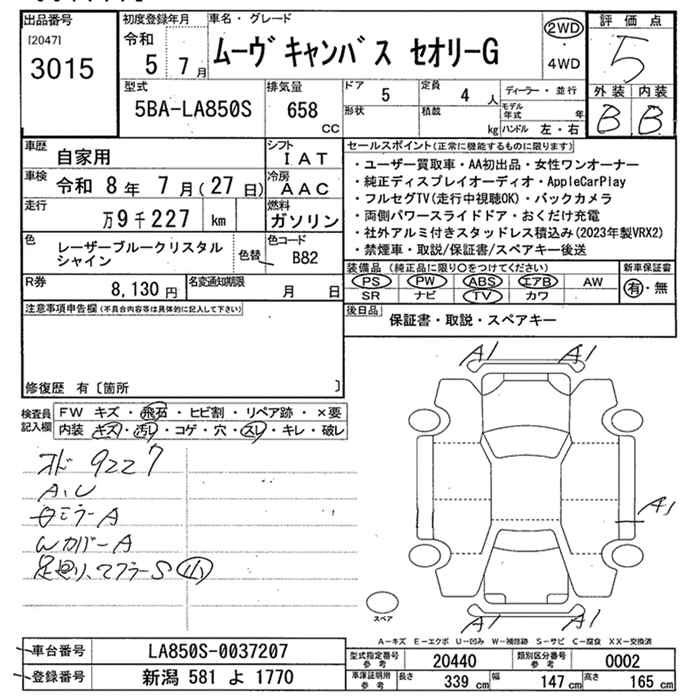 出品番号
[2047]
3015
初度登録年月
令和
5 7月
車名・グレード
ムーヴキャンバス セオリーG
2WD
・
4WD
評価点
5
外装 内装
B B
型式
5BA-LA850S
排気量
658
CC
ドア
5
定員
4 人
形状
積載
kg
ディーラー・並行
モデル年式 年
ハンドル 左・右
車歴
自家用
シフト
IAT
車検 令和 8年 7月(27日)
冷房
AAC
走行
万9千227 km
燃料
ガソリン
色
レーザーブルークリスタル
シャイン
色替
色コード
B82
R券
8,130円
名変通知期限
月 日
セールスポイント(正常に機能するものに限ります)
・ユーザー買取車・AA初出品・女性ワンオーナー
・純正ディスプレイオーディオ・AppleCarPlay
・フルセグTV(走行中視聴OK)・バックカメラ
・両側パワースライドドア・おくだけ充電
・社外アルミ付きスタッドレス積込み(2023年製VRX2)
・禁煙車・取説/保証書/スペアキー後送
装備品(純正品に限り○をつけてください)
PS PW ABS エアB AW
SR ナビ TV カワ
新車保証書
有・無
後日品
保証書・取説・スペアキー
注意事項申告欄(不具合内容等は具体的に記入して下さい)
修復歴 有〔箇所 〕
検査員
記入欄
FW キズ・飛石・ヒビ割・リペア跡・×要
内装 キズ・汚レ・コゲ・穴・スレ・キレ・破レ
オド 9227
A、U
Wカバー A
足廻り、マフラーS 小
A1 A1
A1
A1 A1
スペア
A-キズ E-エクボ U-凹み W-補修跡 S-サビ C-腐食 XX-交換済
車台番号
LA850S-0037207
登録番号
新潟 581 よ 1770
型式指定番号
参考
20440
類別区分番号
参考
0002
車庫証明用
参考
長さ
339 cm
幅
147 cm
高さ
165 cm